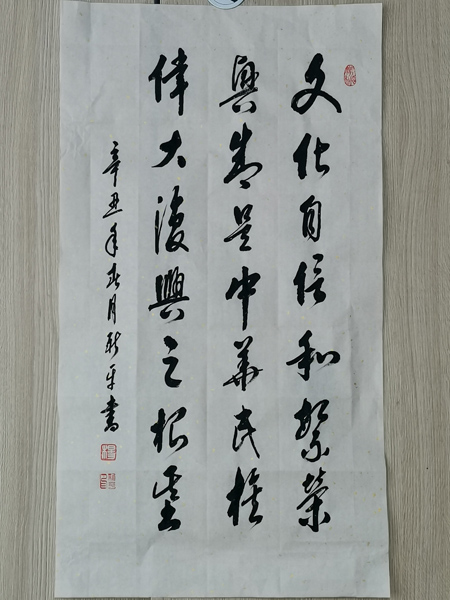 文化自信和繁榮
興盛是中華民族
偉大復興之根基
辛丑年春月平書